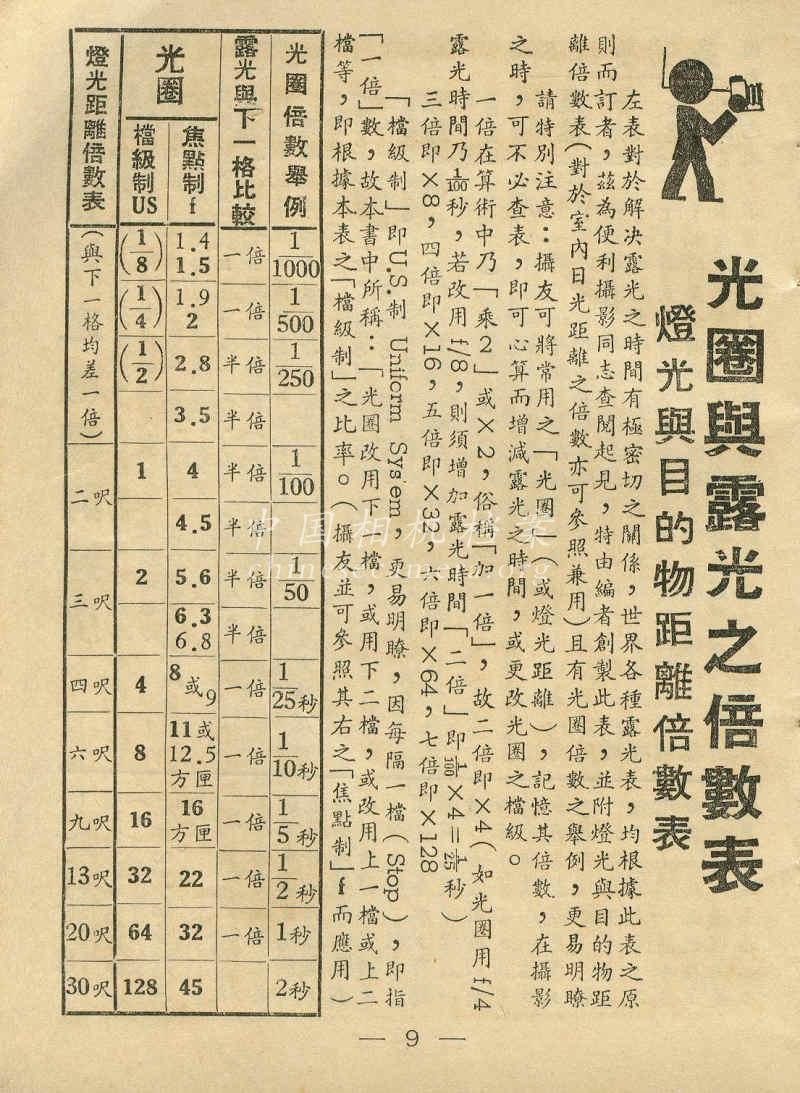 光圈與露光之倍數表
燈光與目的物距離倍數表
左表對於解決露光之時間有極密切之關係，世界各種露光表，均根據此表之原
則而訂者，茲為便利攝影同志查閱起見，特由編者創製此表，並附燈光與目的物距
離倍數表(對於室內日光距離之倍數亦可參照兼用)且有光圈倍數之舉例，更易明瞭
請特別注意：攝友可將常用之「光圈」(或燈光距離)，記憶其倍數，在攝影
之時，可不必查表，即可心算而增減露光之時間，或更改光圈之檔級。
一倍在算術中乃「乘2」或×2，俗稱「加一倍」，故二倍即×4(如光圈用f/4
露光時間乃1/100秒，若改用f/8，則須增加露光時間「二倍」即1/100×4=1/25秒)
三倍即×8，四倍即×16，五倍即×32，六倍即×64，七倍即×128
「檔級制」即U.S.制 Uniform Sys'em，更易明瞭，因每隔一檔(Stop)，即指
「一倍」數，故本書中所稱：「光圈改用下一檔，或用下二檔，或改用上一檔或上二
檔等，即根據本表之「檔級制」之比率。(攝友並可參照其右之「焦點制」f而應用)
光圈倍數舉例 1/1000 1/500 1/250 1/100 1/50 1/25秒 1/10秒 1/5秒 1/2秒 1秒 2秒
露光與下一格比較 一倍 一倍 半倍 半倍 半倍 半倍 半倍 半倍 一倍 一倍 一倍 一倍 一倍
光圈
焦點制f 1.4 1.5 1.9 2 2.8 3.5 4 4.5 5.6 6.3 6.8 8或9 11或12.5方匣 16方匣 22 32 45
檔級制US (1/8) (1/4) (1/2) 1 2 4 8 16 32 64 128
燈光距離倍數表 (與下一格均差一倍) 二呎 三呎 四呎 六呎 九呎 13呎 20呎 30呎
— 9 —
中国相机档案